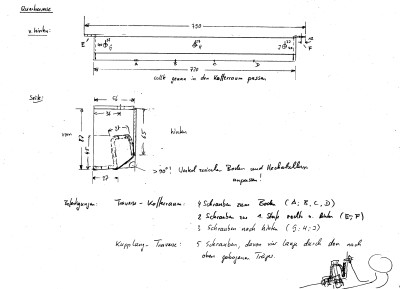 Quertraverse
v. hinten:
790
E
G
H
J
F
A
B
C
D
730
sollte genau in den Kofferraum passen
Seite:
56
36
27
vorn
87
65
hinten
27
>90°! Winkel zwischen Boden und Heckabschluss
anpassen!
Befestigungen: Traverse - Kofferraum: 4 Schrauben zum Boden (A; B; C; D)
2 Schrauben zu rechts u. links (E; F)
3 Schrauben nach hinten (G; H; J)
Kupplung - Traverse: 5 Schrauben, davon vier lange durch den nach
oben gebogenen Träger.